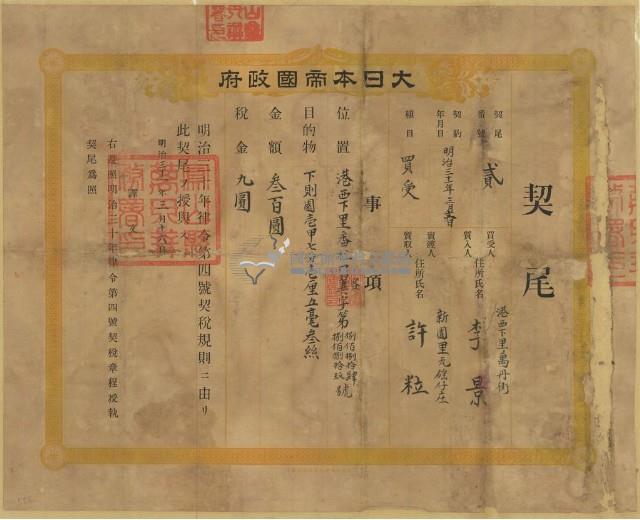 大日本帝國政府
契尾
契尾
番號
貳
契約
年月日
明治三十一年三月
種目
買受
買受人
質入人
住所氏名
港西下里萬丹街
李景
賣渡人
質取人
住所氏名
新園里瓦磘仔庄
許粒
事項
位置
港西下里番
字第
捌佰捌拾肆
捌佰捌拾玖
號
目的物
下則園壹甲七分七厘五毫叁絲
金額
叁百圓
稅金
九圓
明治三十年律令第四號契稅規則ニ由リ
此契尾ヲ授與ス
明治三十一年三月十六日
譯文
右遵照明治三十年律令第四號契稅章程授執
契尾為照